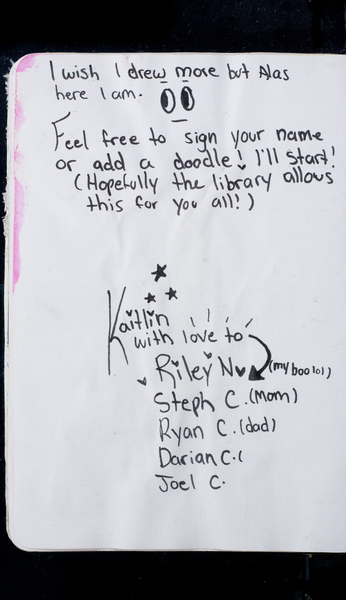 I wish I drew more but Alas
here I am.
Feel free to sign your name
or add a doodle! I'll start!
(Hopefully the library allows
this for you all!)
Kaitlin
with love to
Riley N. (my boo lol)
Steph C. (Mom)
Ryan C. (dad)
Darian C. (
Joel C.